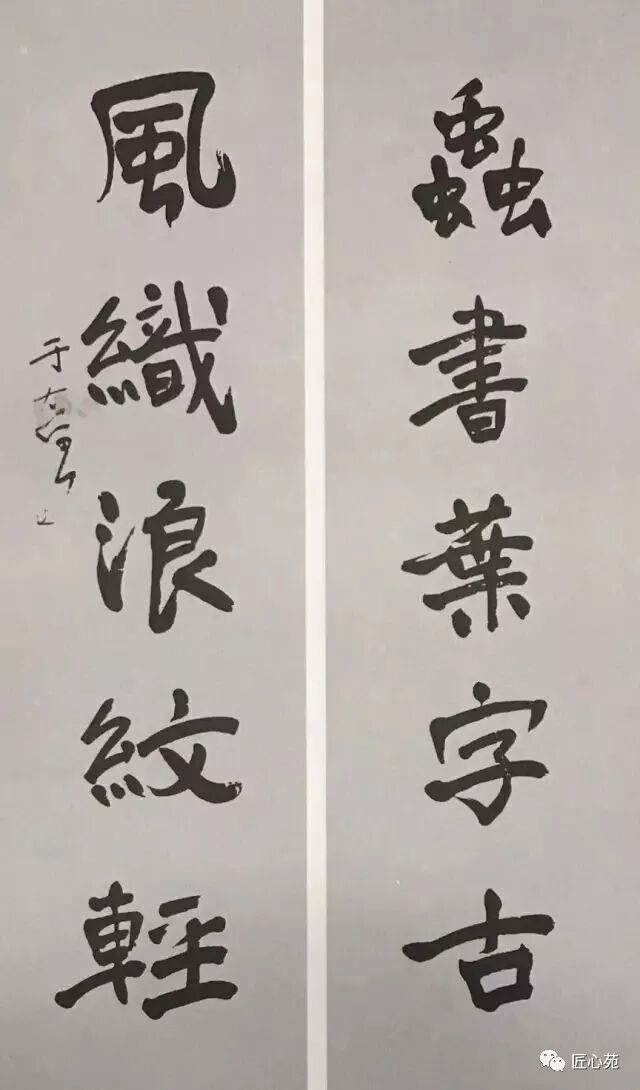 蟲書葉字古
風織浪紋輕
于右任
匠心苑